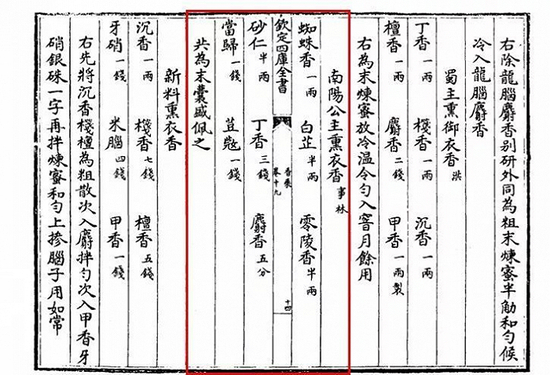 右除龍腦麝香別研外同為粗末煉蜜半觔和勻候
冷入龍腦麝香
蜀主熏御衣香 洪
丁香一兩 棧香一兩 沉香一兩
檀香一兩 麝香二錢 甲香一兩製
右為末煉蜜放冷溫令勻入窨月餘用
南陽公主熏衣香 事林
蜘蛛香一兩 白芷半兩 零陵香半兩
欽定四庫全書 香乗 卷十九 十四
砂仁半兩 丁香三錢 麝香五分
當歸一錢 荳蔲一錢
共為末囊盛佩之
新料熏衣香
沉香一兩 棧香七錢 檀香五錢
牙硝一錢 米腦四錢 甲香一錢
右先將沉香棧檀為粗散次入麝拌勻次入甲香牙
硝銀硃一字再拌煉蜜和勻上摻腦子用如常